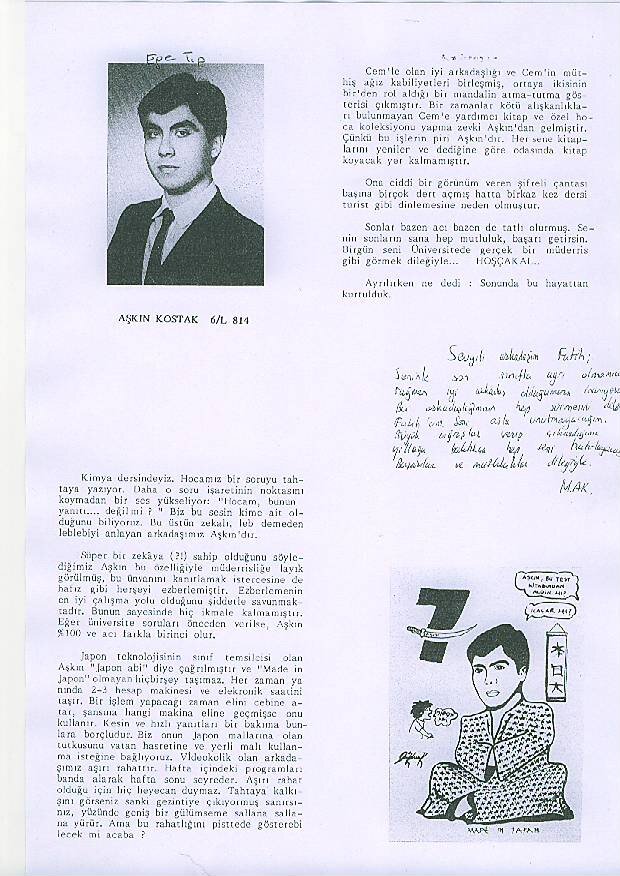 Ege Tıp
AŞKIN KOSTAK 6/L 814
Kimya dersindeyiz. Hocamız bir soruyu tah-
taya yazıyor. Daha o soru işaretinin noktasını
koymadan bir ses yükseliyor: "Hocam, bunun
yanıtı.... değil mi ? " Biz bu sesin kime ait ol-
duğunu biliyoruz. Bu üstün zekalı, leb demeden
leblebiyi anlayan arkadaşımız Aşkın'dır.
Süper bir zekâya (?!) sahip olduğunu söyle-
diğimiz Aşkın bu özelliğiyle müderrisliğe layık
görülmüş, bu ünvanını kanıtlamak istercesine de
hafız gibi herşeyi ezberlemiştir. Ezberlemenin
en iyi çalışma yolu olduğunu şiddetle savunmak-
tadır. Bunun sayesinde hiç ikmale kalmamıştır.
Eğer üniversite soruları önceden verilse, Aşkın
%100 ve açı farkla birinci olur.
Japon teknolojisinin sınıf temsilcisi olan
Aşkın "Japon abi" diye çağrılmıştır ve "Made in
Japon" olmayan hiçbirşey taşımaz. Her zaman ya
nında 2-3 hesap makinesi ve elekronik saatini
taşır. Bir işlem yapacağı zaman elini cebine a-
tar, şansına hangi makina eline geçmişse onu
kullanır. Kesin ve hızlı yanıtları bir bakıma bun-
lara borçludur. Biz onun Japon mallarına olan
tutkusunu vatan hasretine ve yerli malı kullan-
ma isteğine bağlıyoruz. Videokolik olan arkada-
şımız aşırı rahattır. Hafta içindeki programları
banda alarak hafta sonu seyreder. Aşırı rahat
olduğu için hiç heyecan duymaz. Tahtaya kalkı-
şını görseniz sanki gezintiye çıkıyormuş sanırsı-
nız, yüzünde geniş bir gülümseme sallana salla-
na yürür. Ama bu rahatlığını pisttede gösterebi
lecek mi acaba ?
Cem'le olan iyi arkadaşlığı ve Cem'in müt-
hiş ağız kabiliyetleri birleşmiş, ortaya ikisinin
bir'den rol aldığı bir mandalin atma-tutma gös-
terisi çıkmıştır. Bir zamanlar kötü alışkanlıkla-
rı bulunmayan Cem'e yardımcı kitap ve özel ho-
ca koleksiyonu yapma zevki Aşkın'dan gelmiştir.
Çünkü bu işlerin piri Aşkın'dır. Her sene kitap-
larını yeniler ve dediğine göre odasında kitap
koyacak yer kalmamıştır.
Ona ciddi bir görünüm veren şifreli çantası
başına birçok dert açmış hatta birkaz kez dersi
turist gibi dinlemesine neden olmuştur.
Sonlar bazen acı bazen de tatlı olurmuş. Se-
nin sonların sana hep mutluluk, başarı getirsin.
Birgün seni Üniversitede gerçek bir müderris
gibi görmek dileğiyle... HOŞÇAKAL...
Ayrılırken ne dedi : Sonunda bu hayattan
kurtulduk.
Sevgili arkadaşım Fatih;
Seninle son sınıfta ayrı
iyi arkadaş
Bu arkadaşlığımızın hep sürmesini
Fatih'cim Seni asla unutmayacağım.
Büyük uğraşlar verip
hep seni
Başarılar ve mutluluklar dileğiyle.
M.AK.
AŞKIN, BU TEST
KİTABINDAN
7
日
本
大
MADE IN JAPAN